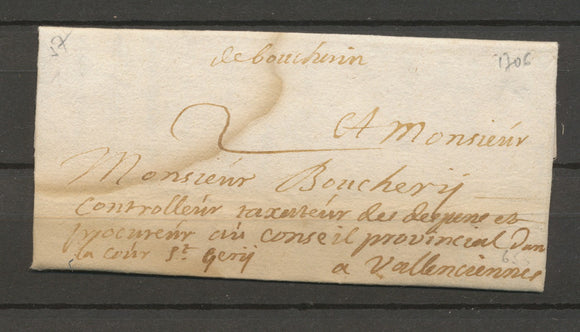 de bouchain
1706
2
A Monsieur
Monsieur Boucherij
Controlleur taxateur des depens et
procureur au Conseil provincial dans
la cour St. Gerij
a Vallenciennes